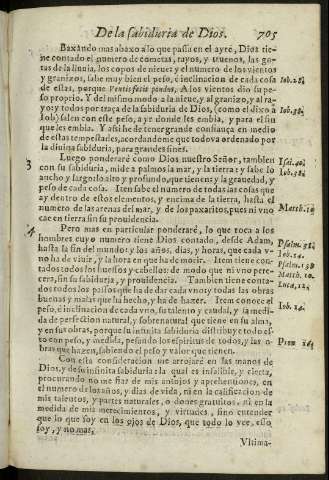 De la sabiduria de Dios. 705
Baxando mas abaxo a lo que passa en el ayre, Dios tie-
ne contado el numero de cometas, rayos, y truenos, las go-
tas de la lluvia, los copos de nieve; y el numero de los vientos
y granizos, sabe muy bien el peso, è inclinacion de cada cosa Iob. 28.
de estas, porque Ventis fecit pondus, A los vientos dio su pe-
so proprio. Y del mismo modo a la nieve, y al granizo, y al ra-
yo; y todos por traça de la sabiduria de Dios, (como el dixo a Iob. 38.
Iob) salen con este peso, a ye donde les embia, y para el fin
que les embia. Y assi he de tener grande confiança en medio
de estas tempestades, acordandome que todo va ordenado por
la divina sabiduria, para grandes fines.
3 Luego ponderaré como Dios nuestro Señor, tambien Isai. 40.
con su sabiduria, mide a palmos la mar, y la tierra; y sabe lo Iob. 38.
ancho y largo, lo alto y profundo, que tienen; y la gravedad, y
peso de cada cosa. Iten sabe el numero de todas las cosas que
ay dentro de estos elementos, y encima de la tierra, hasta el
numero de las arenas del mar, y de los paxaritos, pues ni vno Matth. 10
cae en tierra sin su providencia.
4 Pero mas en particular ponderaré, lo que toca a los
hombres cuyo numero tiene Dios contado, desde Adam, Psalm. 38.
hasta la fin del mundo: y los años, dias, y horas, que cada v- Iob. 14.
no ha de vivir, y la hora en que ha de morir. Item tiene con- Psalm. 138
tados todos los huessos y cabellos: de modo que ni vno pere- Matth. 10.
cera, sin su sabiduria, y providencia. Tambien tiene conta- Luca, 12.
dos todos los passos que ha de dar cada vno; y todas las obras
buenas y malas que ha hecho, y ha de hazer. Item conoce el Iob. 14.
peso, è inclinacion de cada vno, su talento y caudal, y la medi-
da de perfecion natural, y sobrenatural que tiene en su alma,
y en sus obras, porque su infinita sabiduria distribuye todo es-
to con peso, y medida, pesando los espiritus de todos, y las o- Prou 16.
bras que hazen, sabiendo el peso y valor que tienen.
Con esta consideracion me arrojaré en las manos de
Dios, y de su infinita sabiduria la qual es infalible, y cierta,
procurando no fiar de mis antojos y aprehentiones, en
el numero de los años, y dias de vida, ni en la calificacion de
mis talentos, y partes naturales, o dones gratuitos, ni en la
medida de mis merecimientos, y virtudes, sino entender
que lo que soy en los ojos de Dios, que todo lo vee, esso
soy, y no mas.
Vltima-